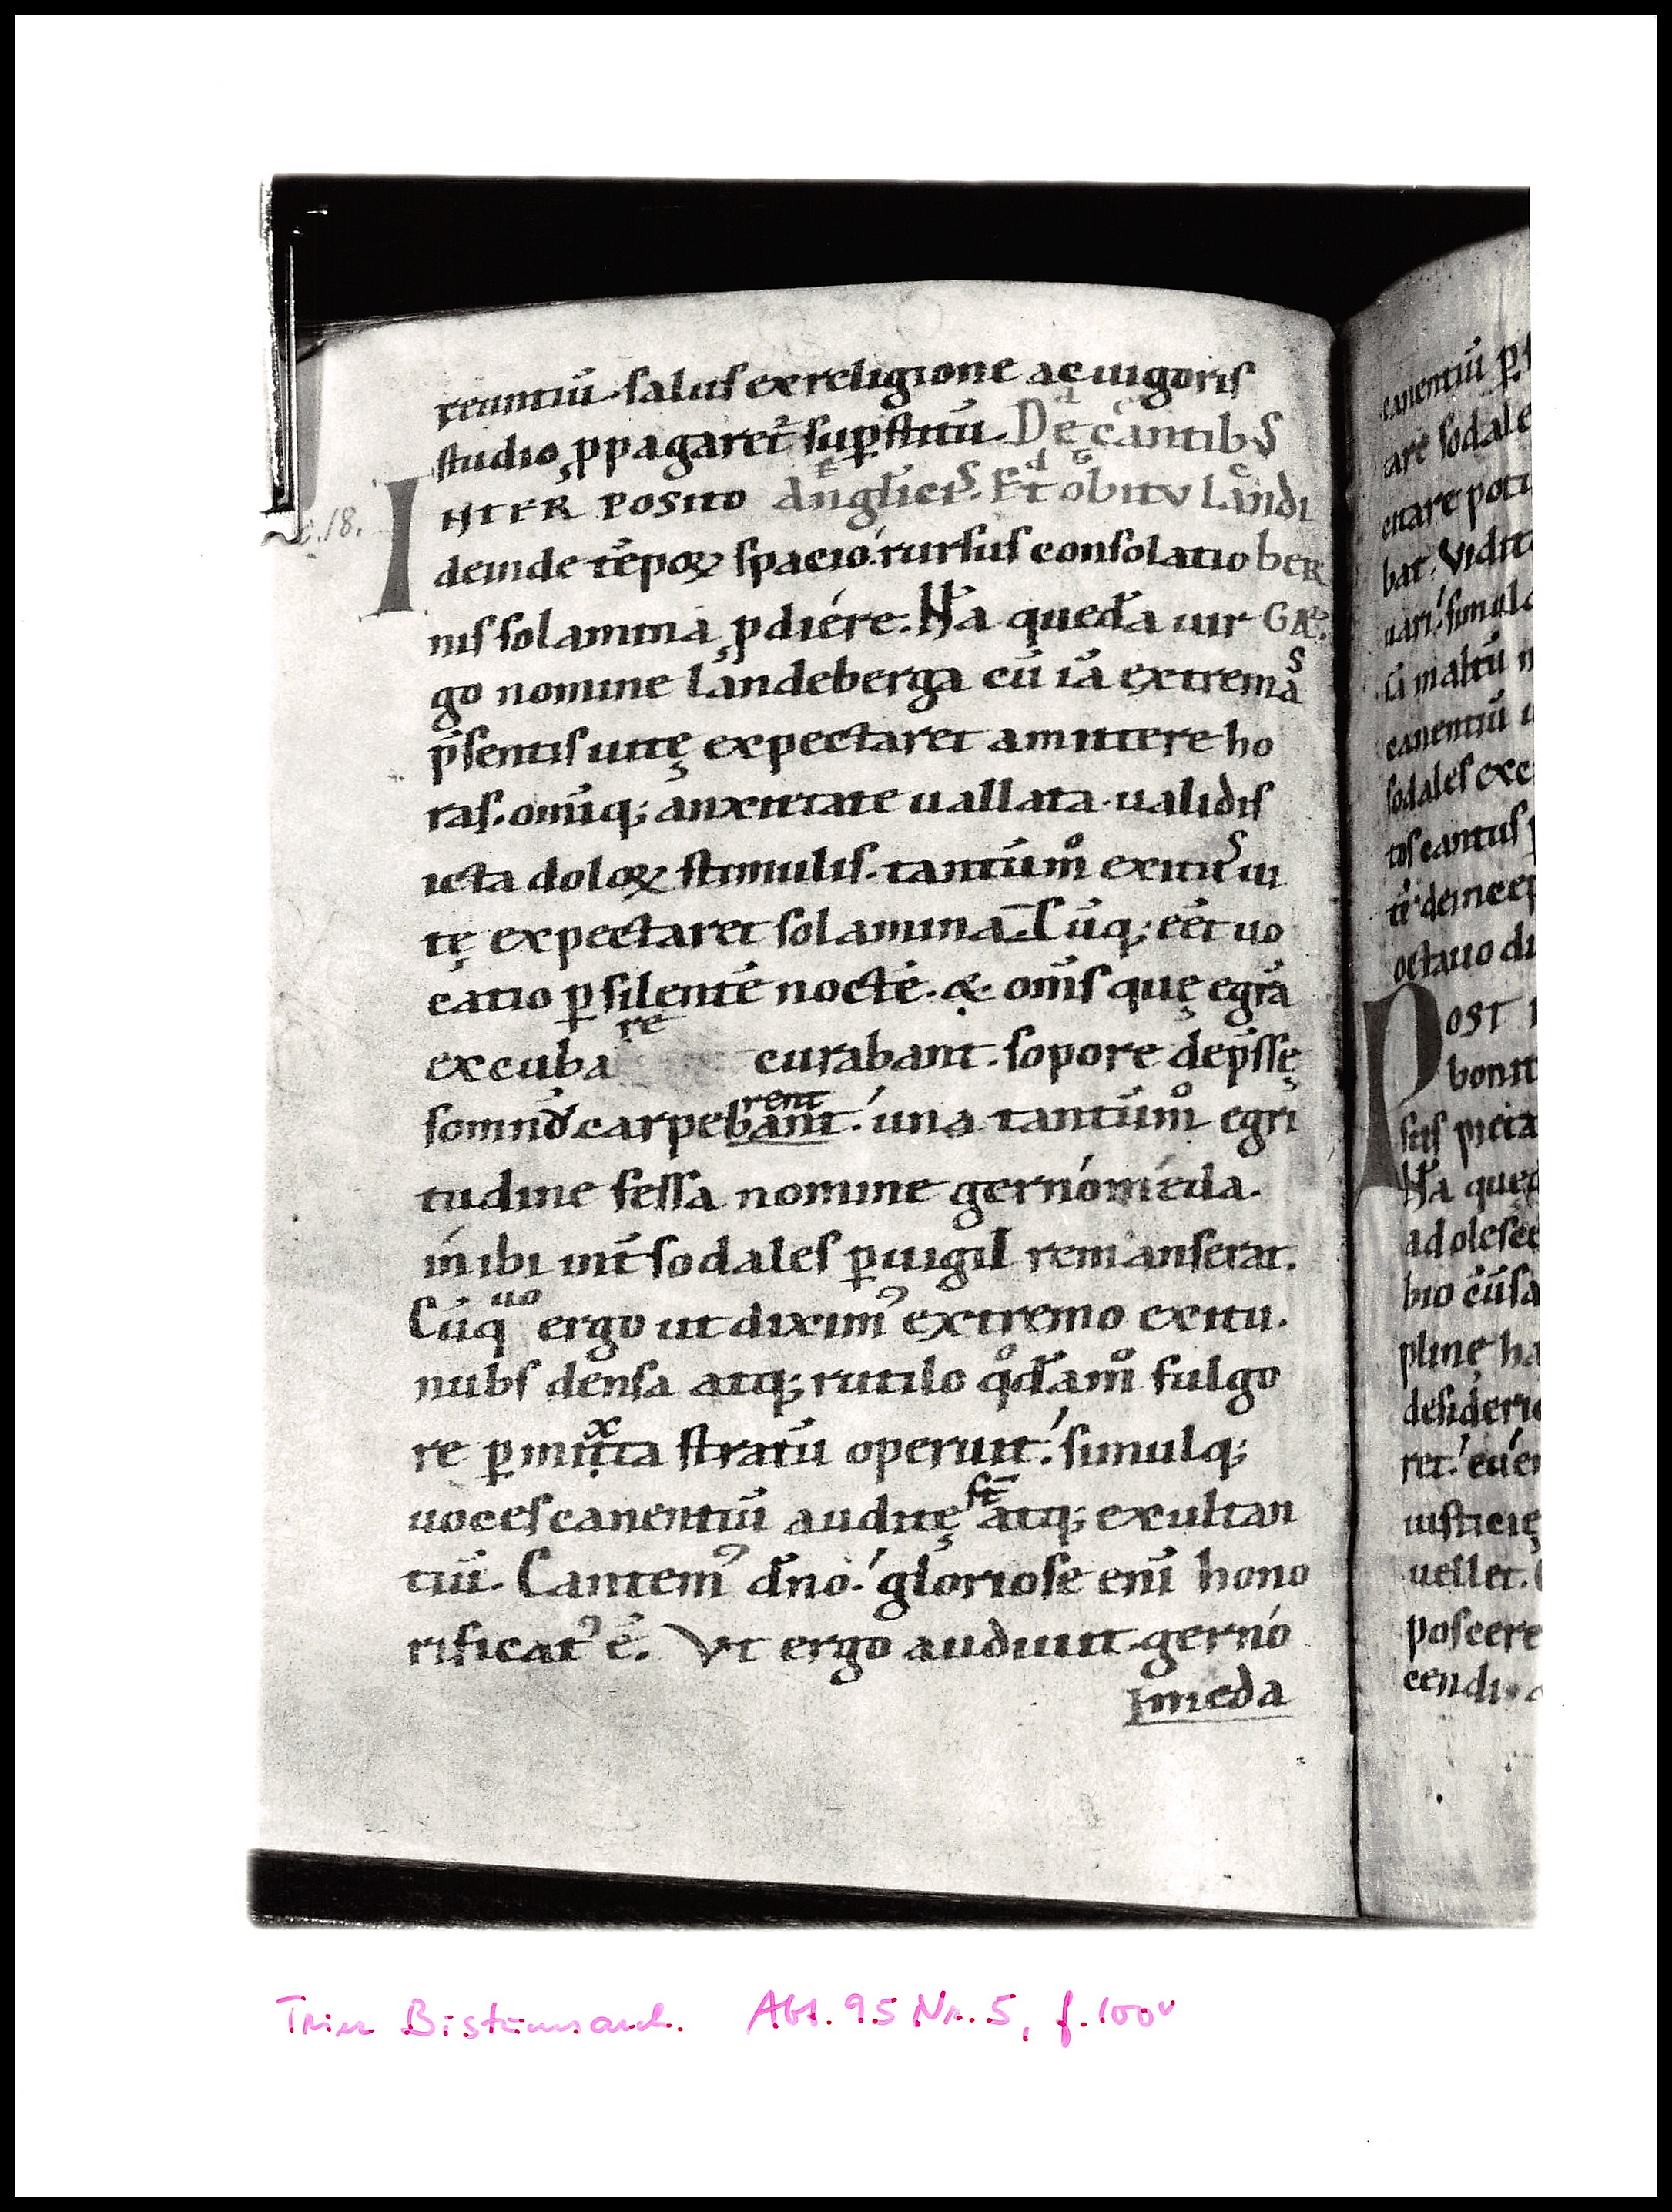 reuntiū. salus ex religione ac uigoris
studio ꝓpagaret᷑ suꝑstitū. De cantibꝰ
c. 18.
INTER POSITO Anglicis. Et obitv Landi
deinde tēpoꝝ spacio. rursus consolatio ber
nis solamina ꝓdiére. Na quedā uir GÆ.
go nomine lándeberga cū iā extremas
p̄sentis uitę expectaret amittere ho
ras. om̄iq; anxietate uallata. ualidis
icta doloꝝ stimulis. tantūm̊ exitus ui
tę expectaret solamina. Cūq; eēt uo
catio ꝑ silentē nocte. &. om̄s quę egrā
excubare curabant. sopore dep̄ssę
somnū carpebant. rent una tantūm̊ egri
tudine fessa nomine gernómeda.
inibi int̄ sodales ꝑuigil remanserat.
Cūq uo ergo ut diximꝰ extremo exitu.
nubs densa atq; rutilo q̊dam̊ fulgo
re ꝑmixta stratū operuit. simulq;
uoces canentiū auditę st̄ atq; exultan
tiū. Cantemꝰ dn̄o. gloriose enī hono
rificatꝰ ē. Vt ergo audiuit. gernó
meda
canentiū ꝑ
tare sodale
citare poti
bat. Vidit
uari. simul
canentiū
sodales exc
tos cantus
octauo di
POST
bonit
suis pieta
Na qued
adolesce
bio cū sa
plinę ha
desiderio
ret. euén
iusticię
uellet.
poscere
cendi.
Trier Bistumsarch. Abt. 95 Nr. 5, f. 100v